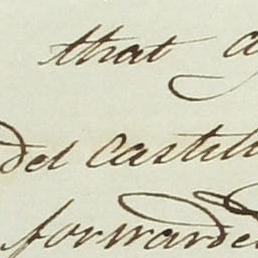 that
del Castill
forwarded